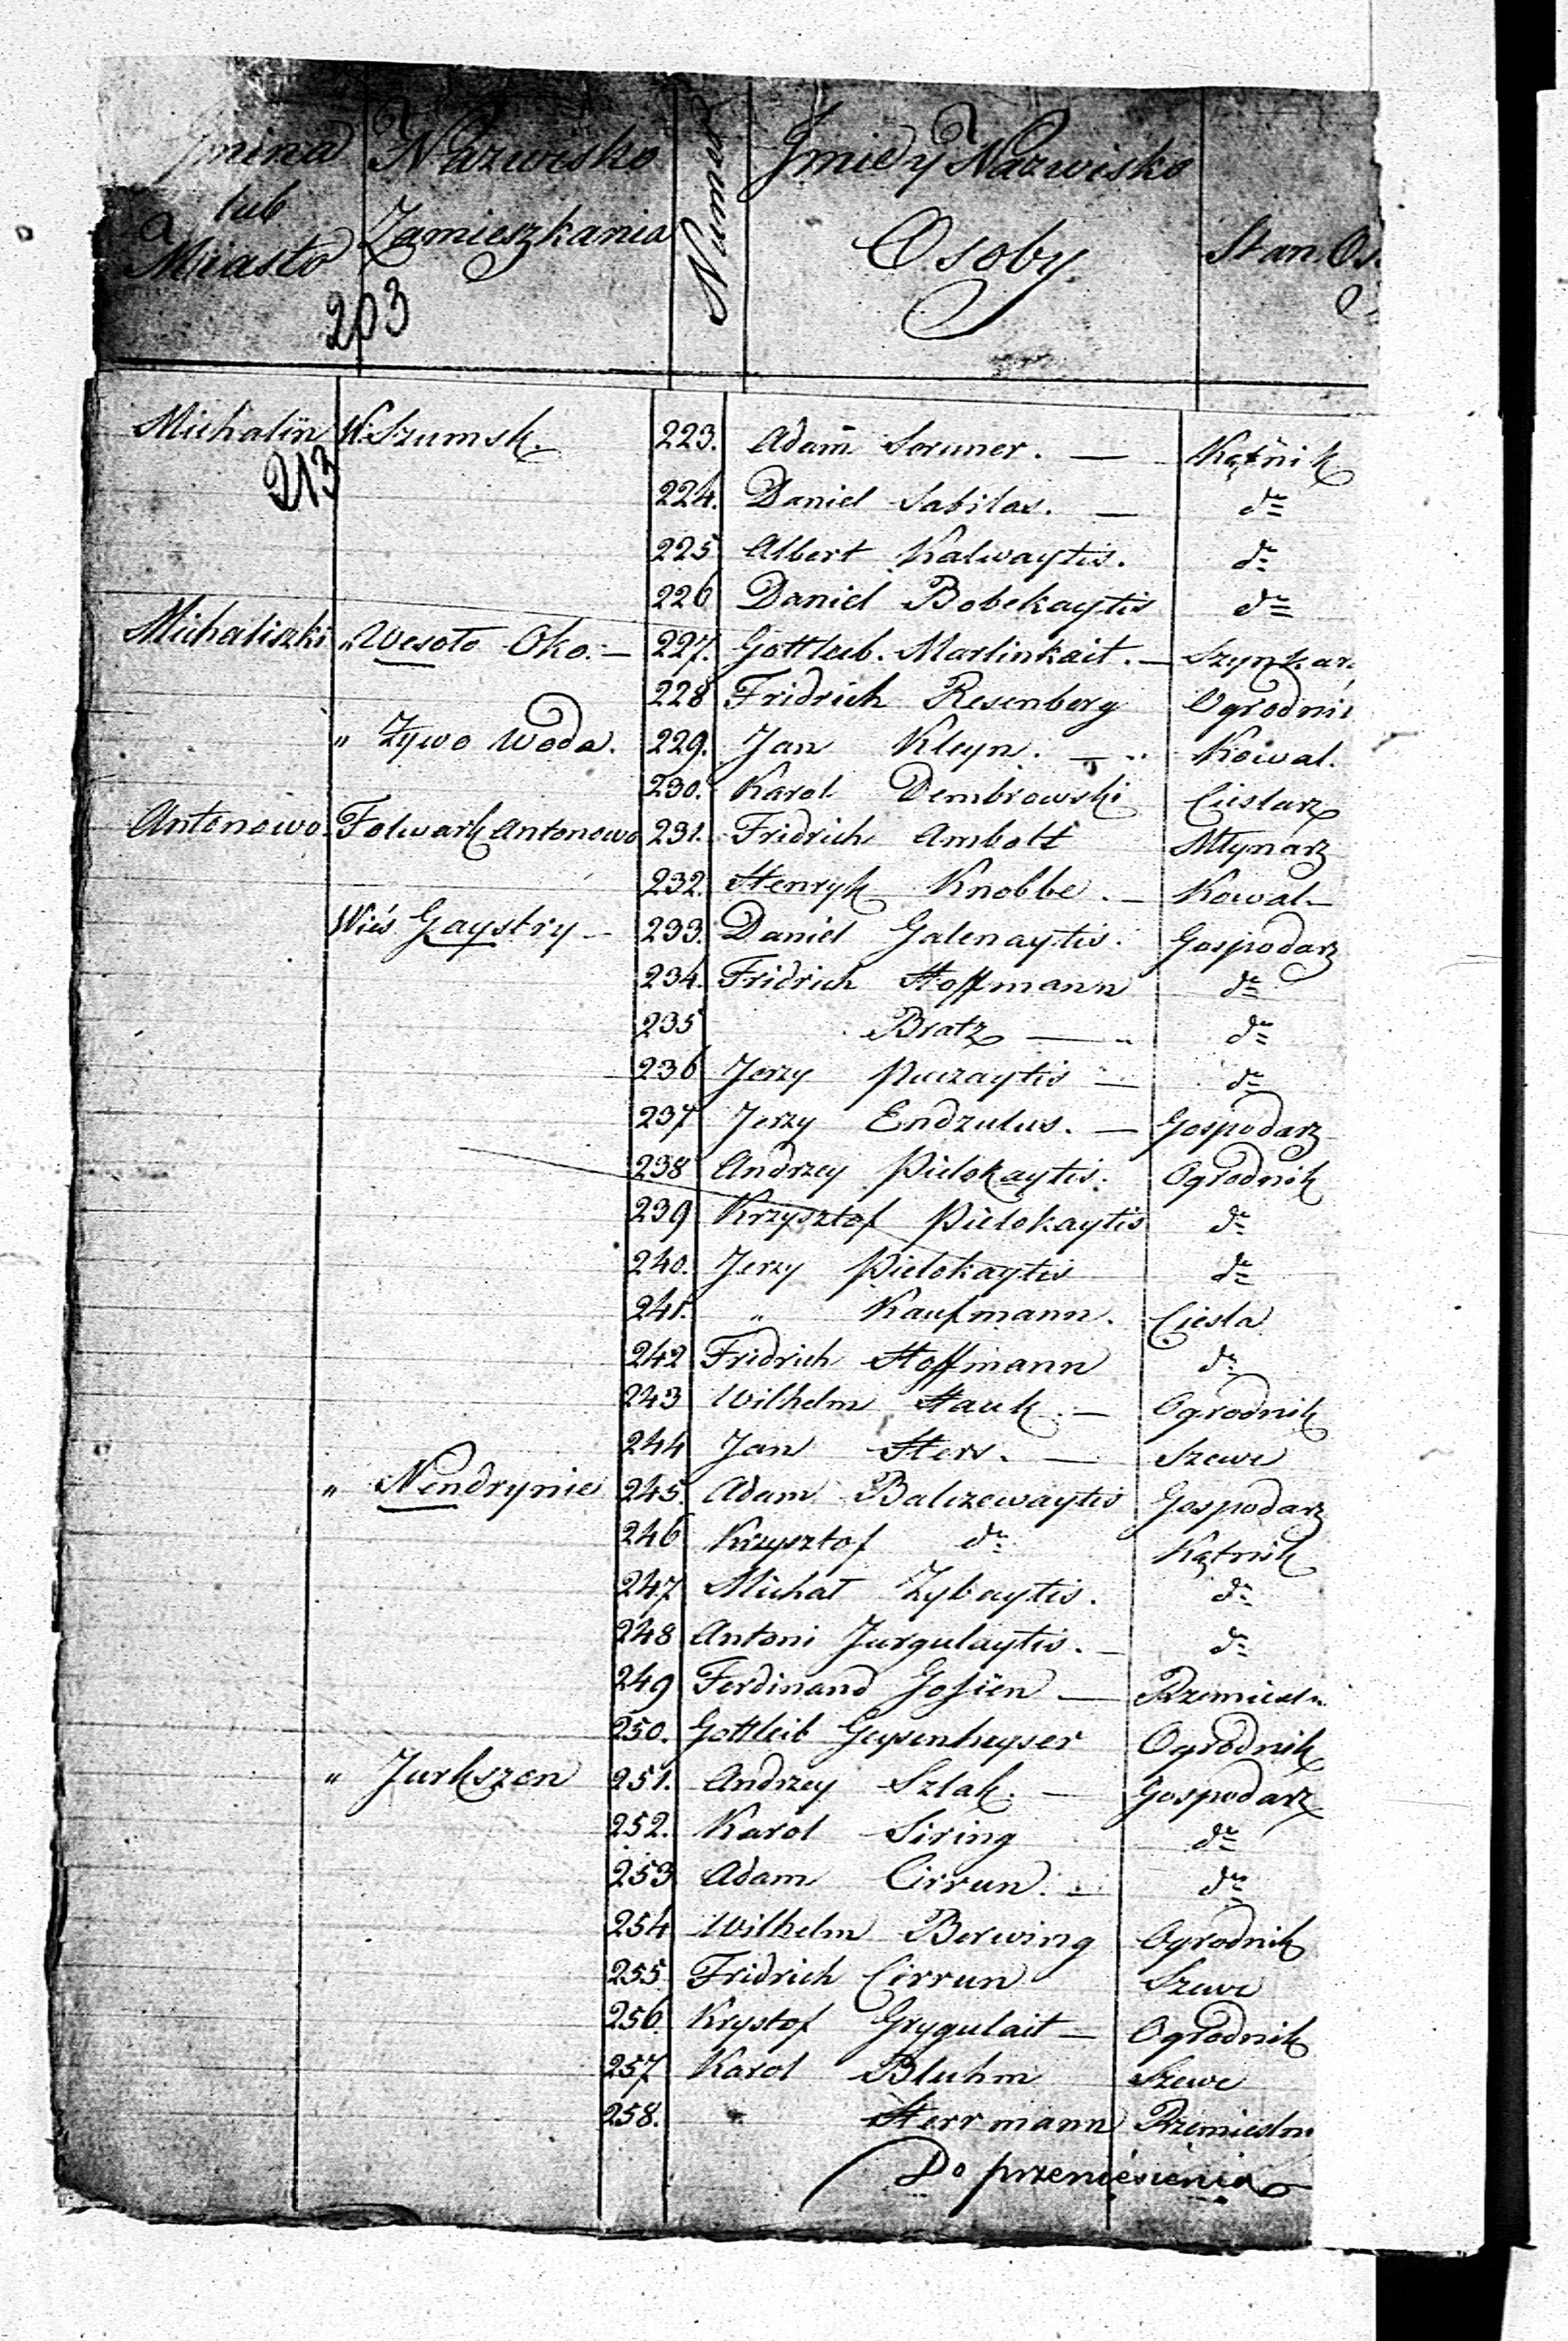 Gmina lub Miasto Nazwisko Zamieszkania Numer Jmie y Nazwisko Osoby Stan Os
203
Michalin W. Szumsk. 223. Adam Seruner. — Kątnik
213
224. Daniel Sabilas. — do
225 Albert Kalwaytis. do
226 Daniel Bobekaytis do
Michaliszki " Wesoło Oko. — 227. Gottleib. Marlinkait. — Szynkar
228 Fridrich Resenberg Ogrodni
" Żywo Woda. 229. Jan Kleyn. — " Kowal.
230. Karol Dembrowski Cieslarz
Antonowo. Folwark Antonowo 231. Fridrich Ambolt Młynarz
232. Henryk Knobbe. — Kowal —
Wieś Gaystry — 233. Daniel Galenaytis. Gospodarz
234. Fridrich Hoffmann do
235 Bratz — " do
236 Jerzy Puczaytis — do
237 Jerzy Endzulus. — Gospodarz
238 Andrzey Pielokaytis. Ogrodnik
239 Krzysztof Pielokaytis do
240. Jerzy Pielokaytis do
241. " Kaufmann. Ciesla
242 Fridrich Hoffmann do
243 Wilhelm Hauk. — Ogrodnik
244 Jan Hers. — Szewc
" Nendrynie 245. Adam Balczewaytis Gospodarz
246 Krzysztof do Kątnik
247 Michał Zybaytis. do
248 Antoni Jurgulaytis. — do
249 Ferdinand Gossien — Rzemiesl
250. Gottleib Geysenheyser Ogrodnik
" Jurkszen 251. Andrzey Szlak. — Gospodarz
252. Karol Siring do
253 Adam Cirrun. — do
254 Wilhelm Berwing Ogrodnik
255. Fridrich Cirrun Szewc
256. Krystof Grygulait — Ogrodnik
257 Karol Bluhm Szewc
258. " Herrmann Rzemiesln
Do przeniesienia